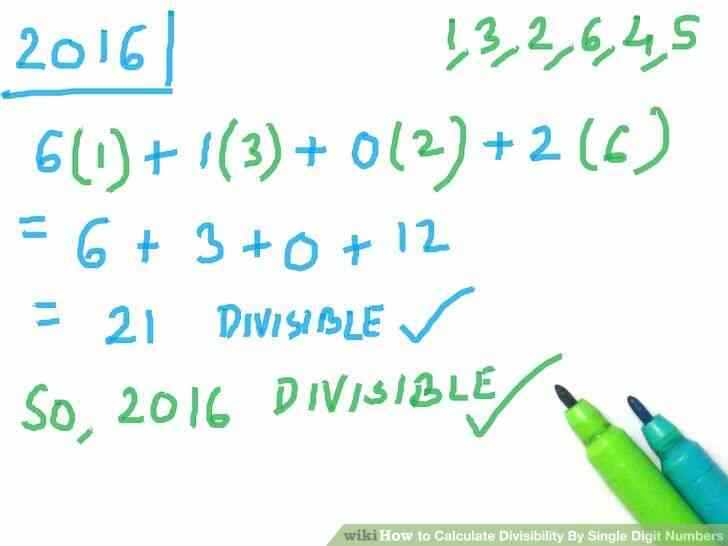 2016
1, 3, 2, 6, 4, 5
6(1) + 1(3) + 0(2) + 2(6)
= 6 + 3 + 0 + 12
= 21 DIVISIBLE ✓
SO, 2016 DIVISIBLE ✓
wikiHow to Calculate Divisibility By Single Digit Numbers